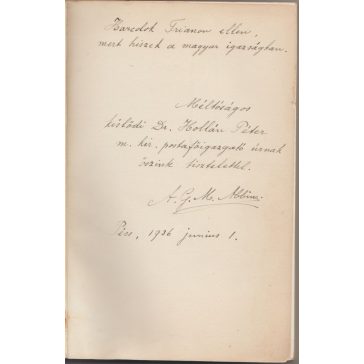 Harcolok Trianon ellen,
mert hiszek a magyar igazságban.
Méltóságos
kislődi Dr. Hollán Péter
m. kir. postafőigazgató úrnak
őszinte tisztelettel.
A. G. M.
Pécs, 1936 junius 1.